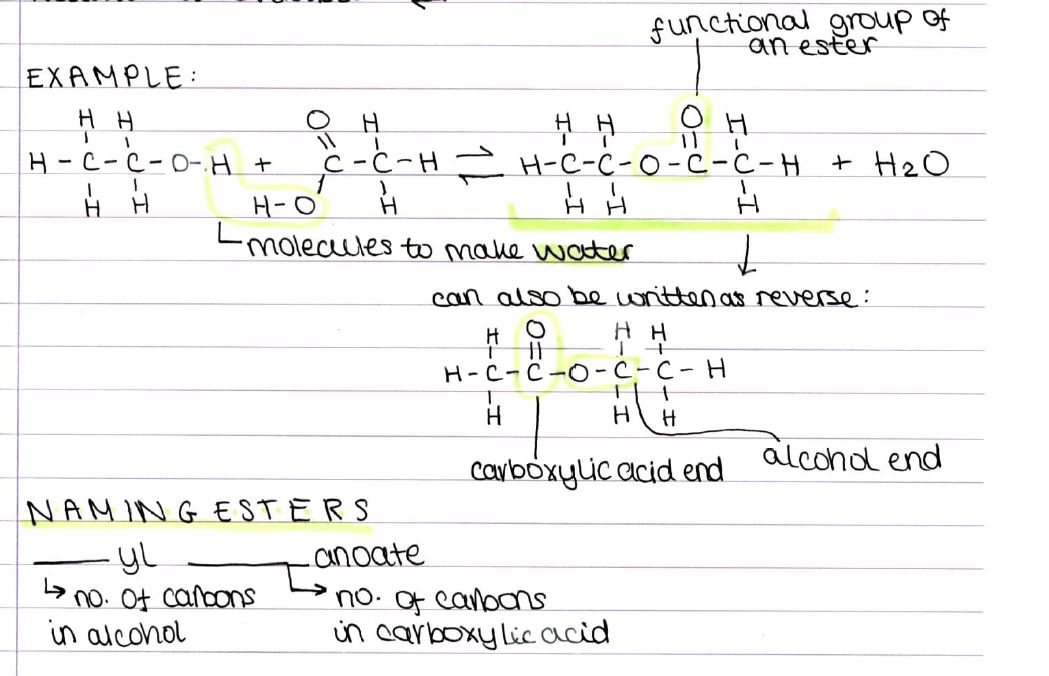 functional group of
an ester
EXAMPLE:
H H O H H H O H
H - C - C - O - H + C - C - H ⇌ H - C - C - O - C - C - H + H2O
H H H - O H H H H
molecules to make water
can also be written as reverse:
H O H H
H - C - C - O - C - C - H
H H H
carboxylic acid end alcohol end
NAMING ESTERS
____ yl ____ anoate
↳ no. of carbons ↳ no. of carbons
in alcohol in carboxylic acid